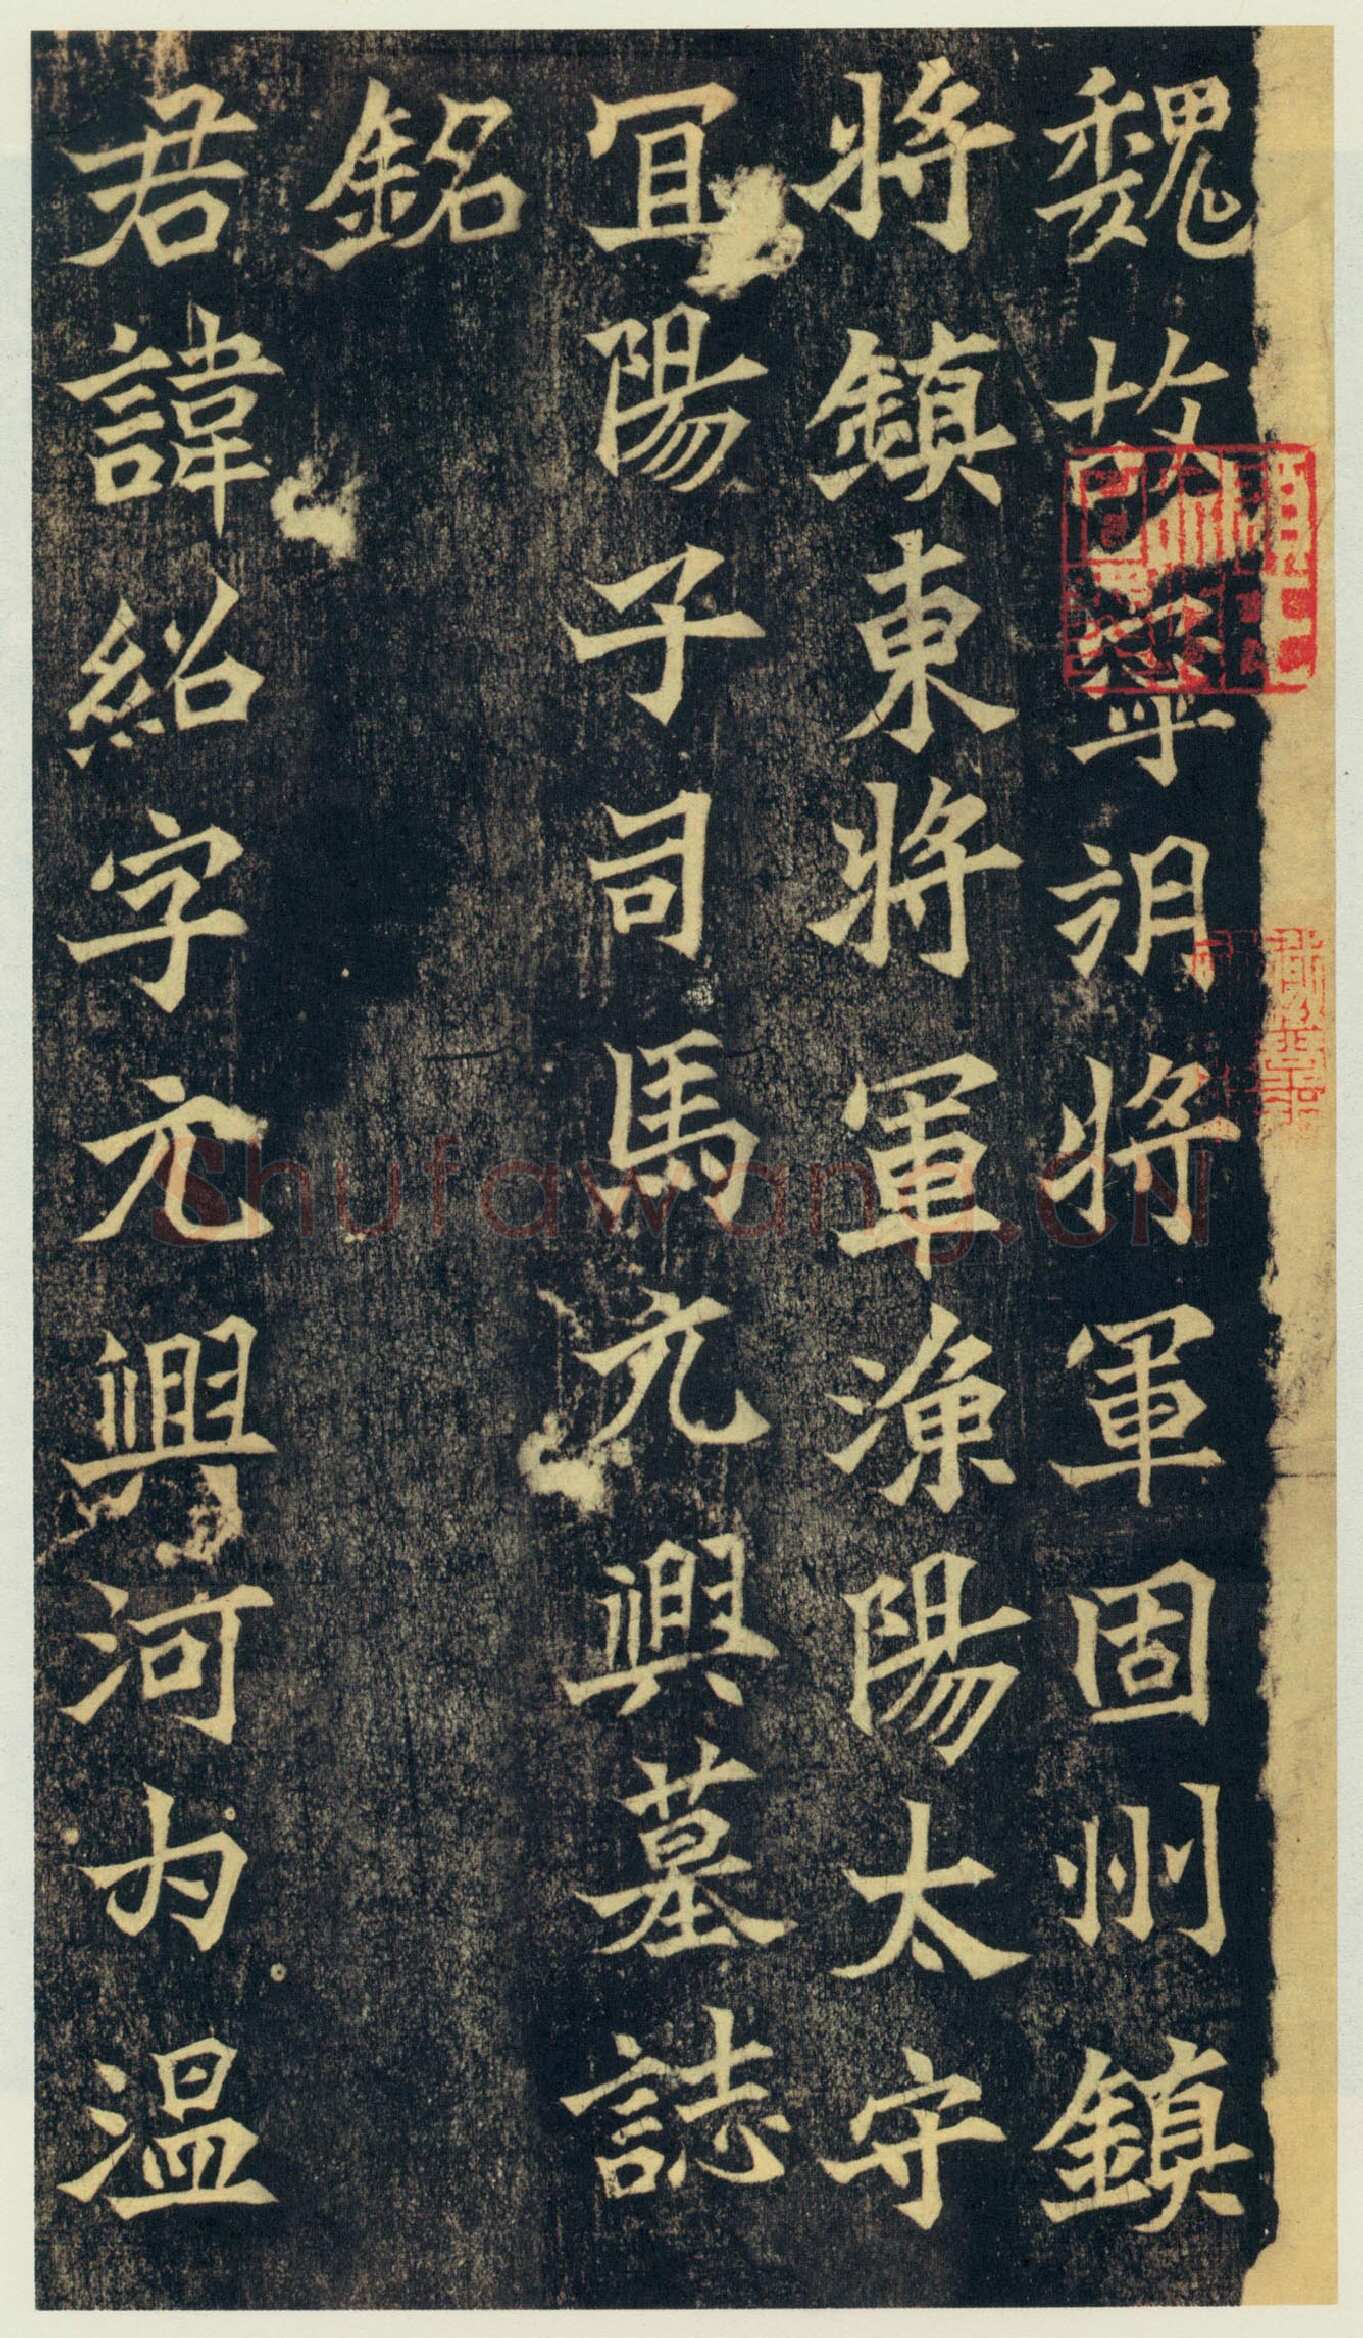 魏故寧朔將軍固州鎮
將鎮東將軍漁陽太守
宜陽子司馬元興墓誌
銘
君諱紹字元興河內溫
Shufawang.CN